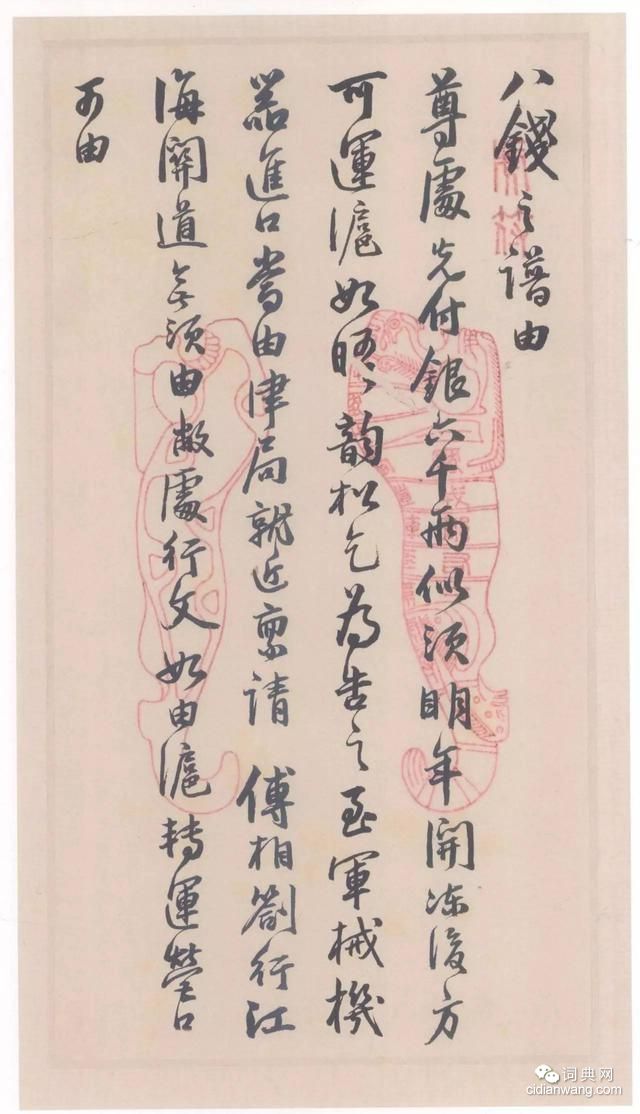 八錢之譜由
尊處先付銀六千兩似須明年開凍後方
可運滬如晤韻松乞為告之至軍械機
器進口當由津局就近稟請 傅相劄行江
海關道無須由敝處行文如由滬轉運營口
可由
词典网
cidianwang.com